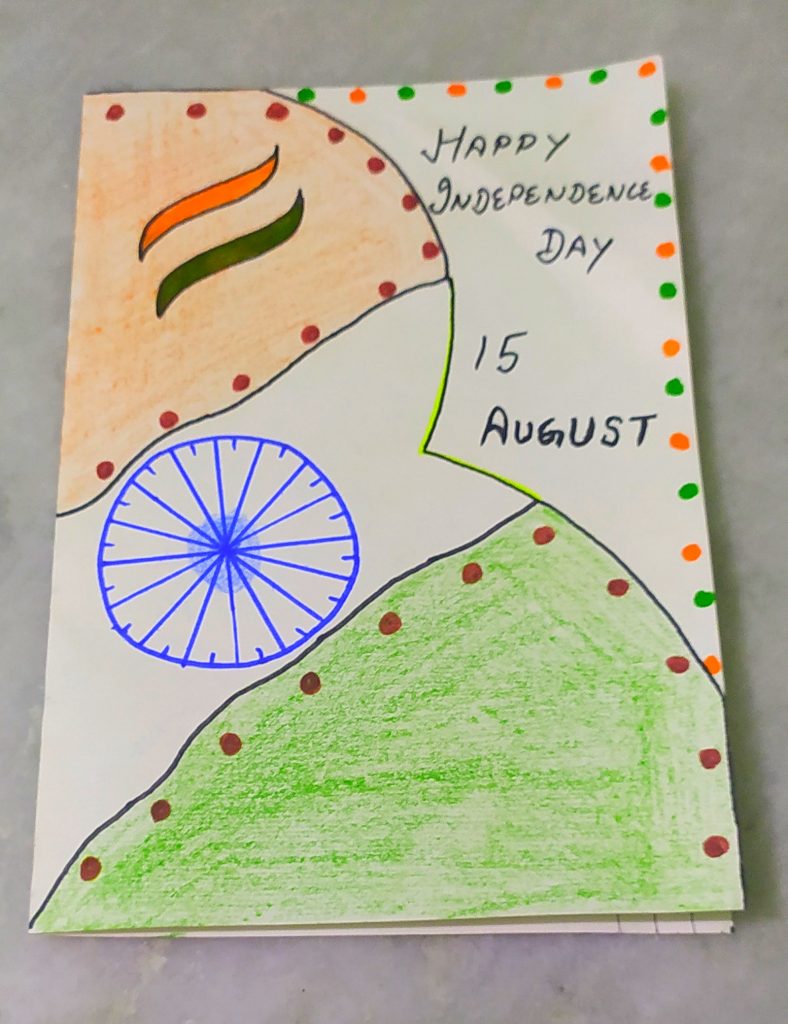 HAPPY
INDEPENDENCE
DAY
15
AUGUST